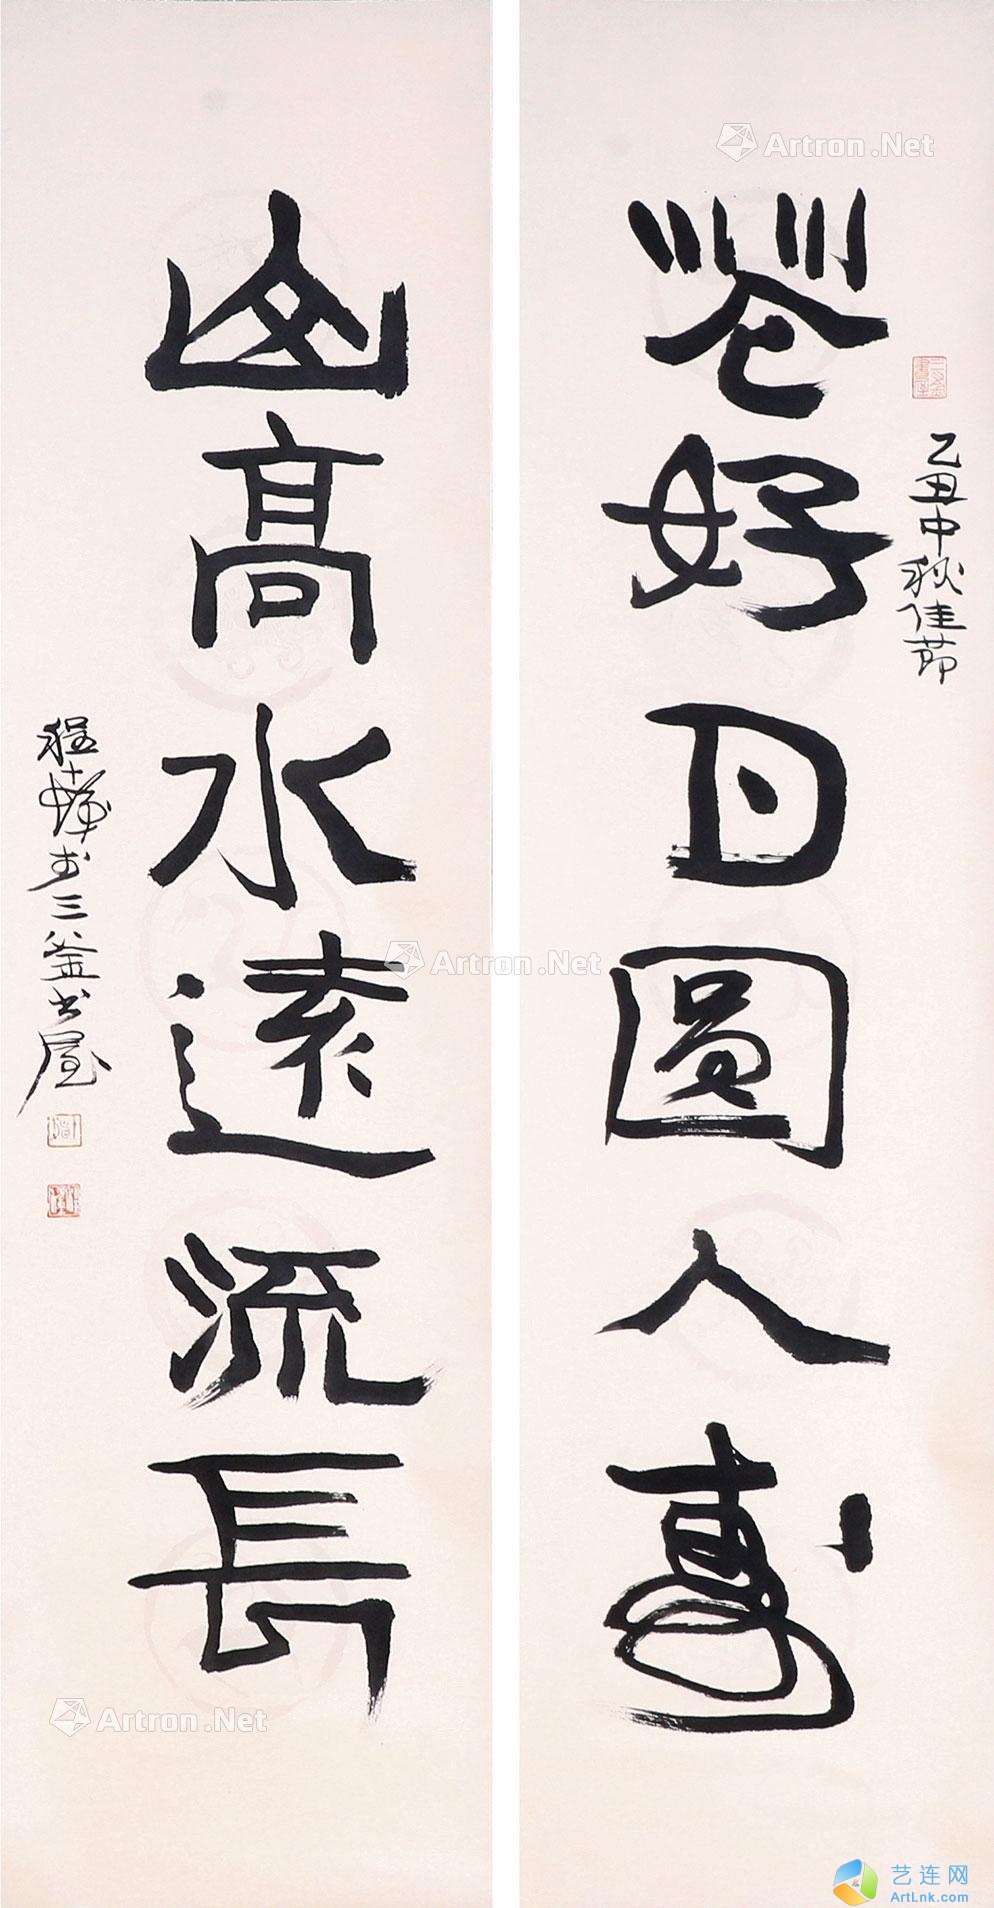 花好月圓人寿
乙丑中秋佳節
山高水遠流長
程十髮书三釜书屋
三釜書屋
Artron.Net
Artron.Net
Artron.Net
艺连网
ArtLnk.com